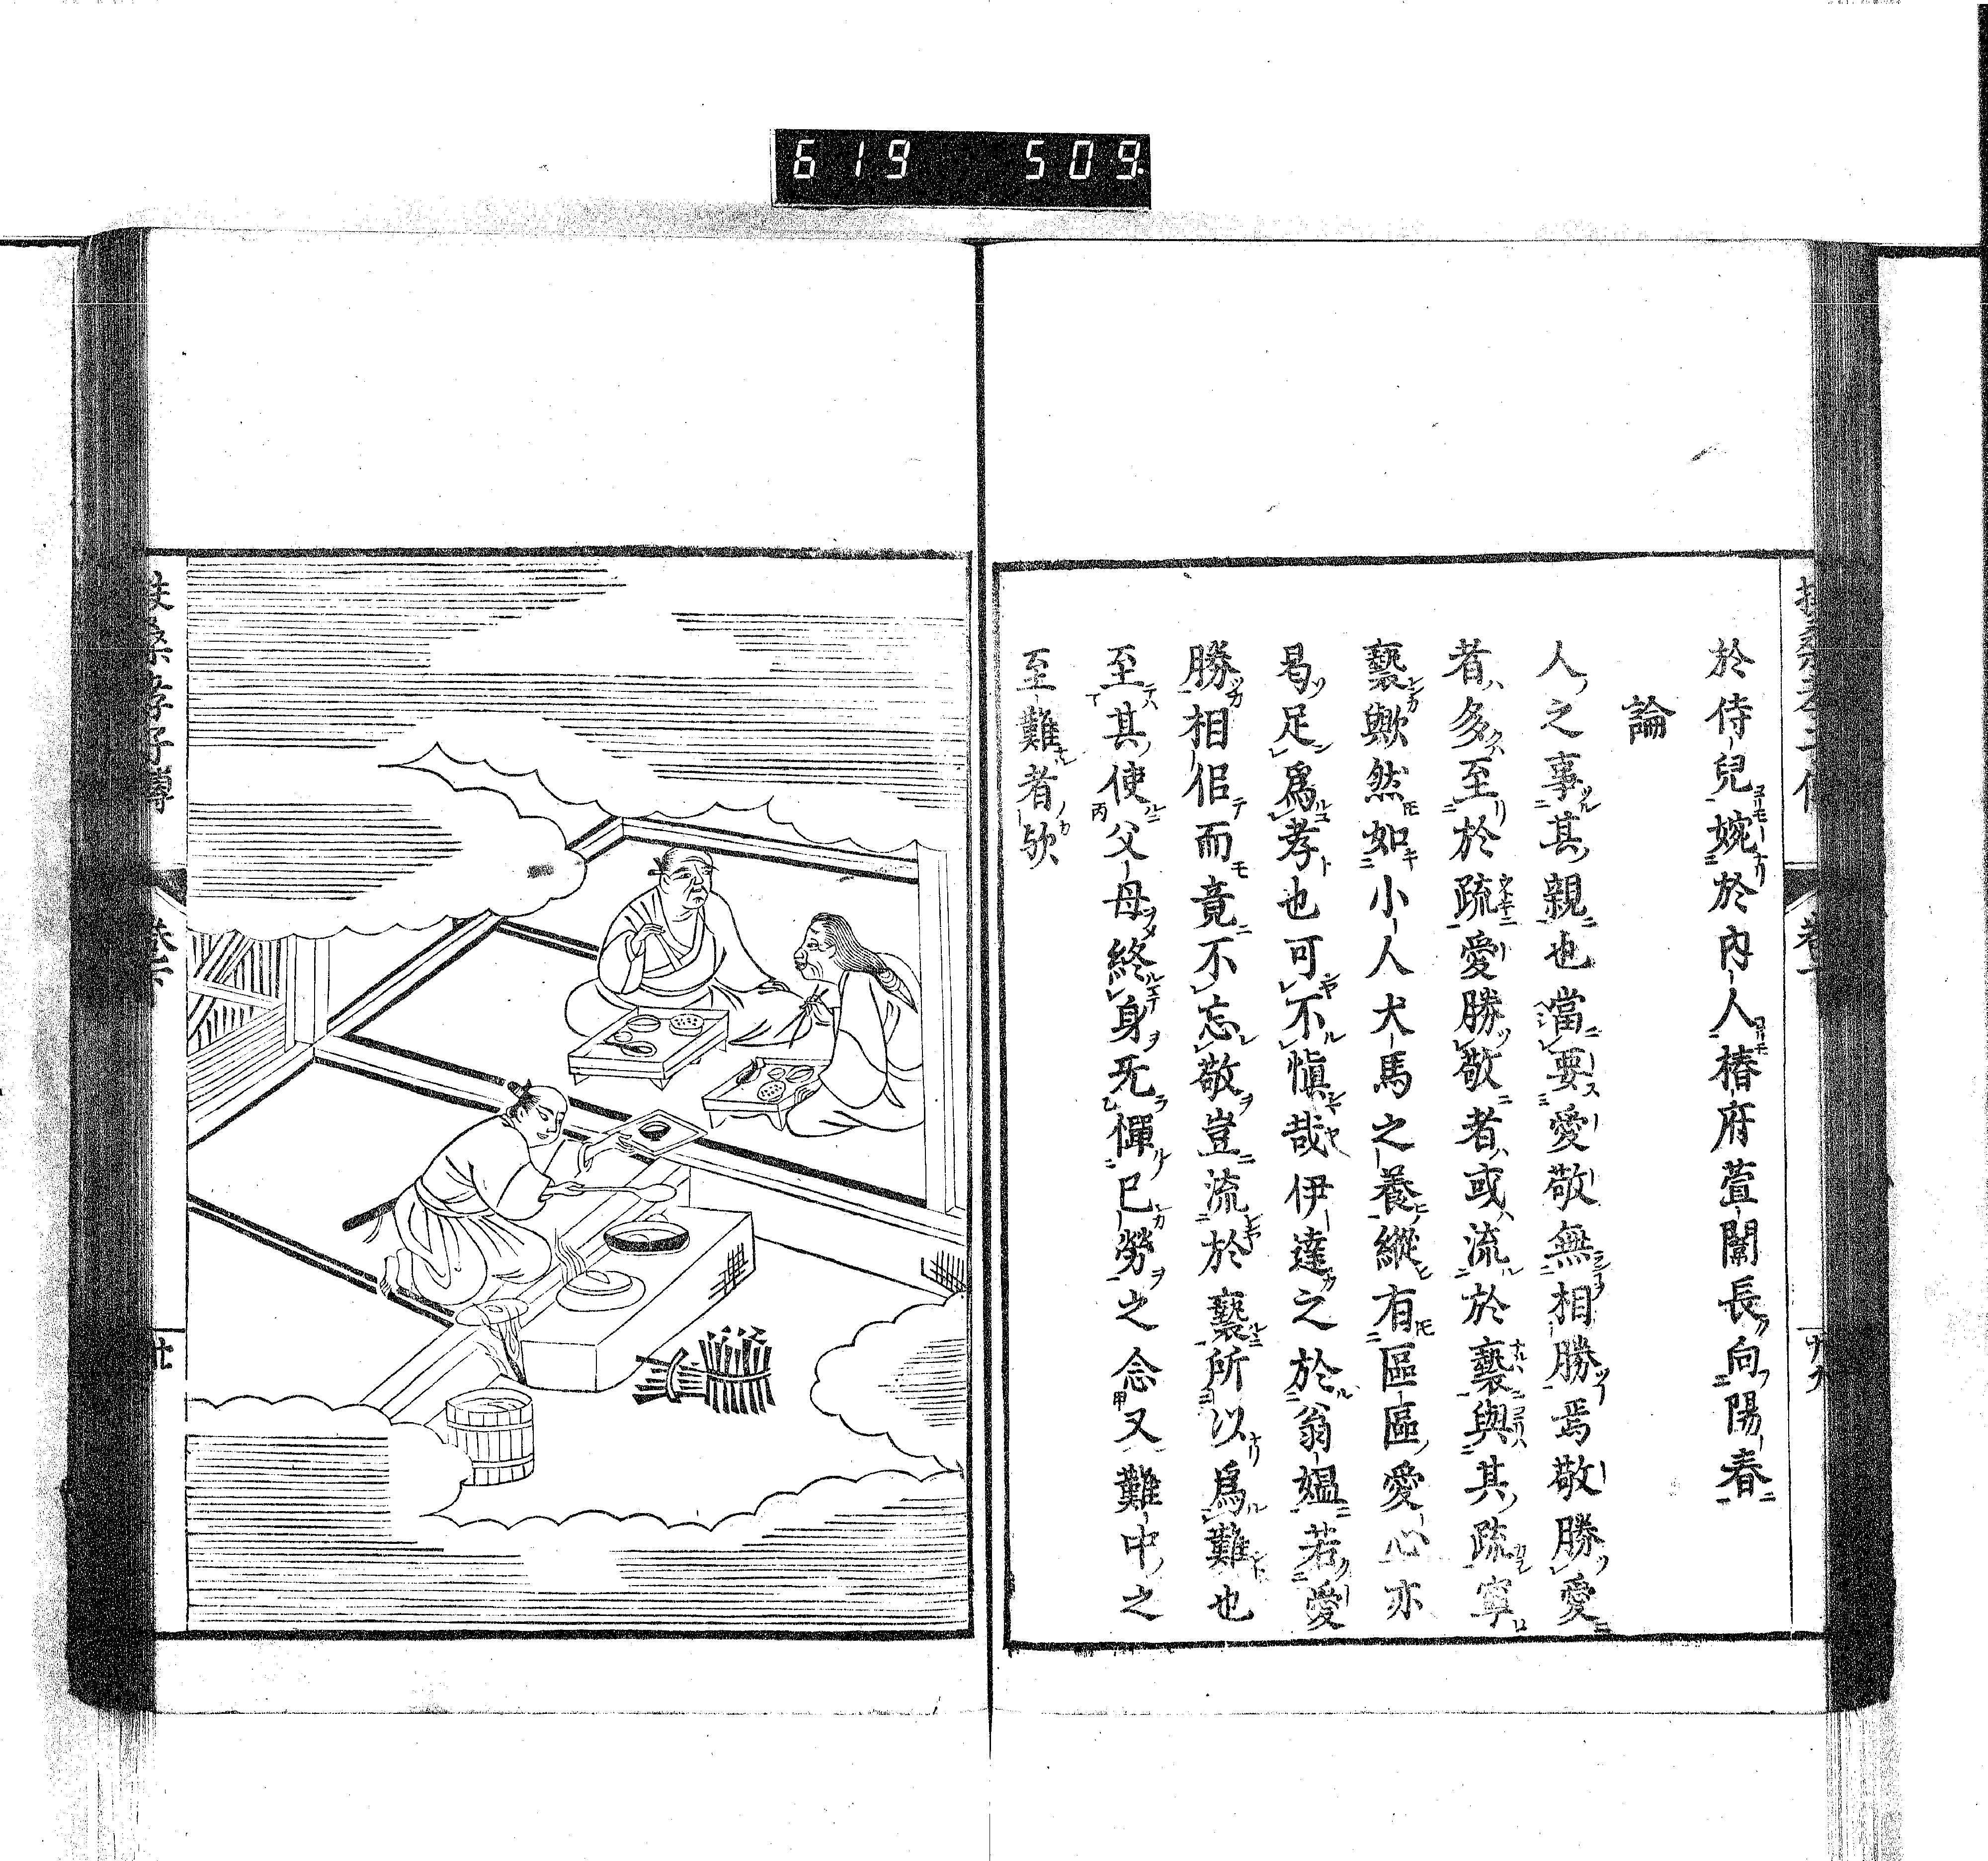 619 509.
於侍兒婉於內人椿府萱闈長向陽春
論
人之事其親也當要愛敬無相勝焉敬勝愛
者多至於疏愛勝敬者或流於褻與其疏寧
褻歟然如小人犬馬之養縱有區區愛心亦
曷足爲孝也可不愼哉伊達之於翁媼若愛
勝相佀而竟不忘敬豈流於褻所以爲難也
至其使父母終身旡憚已勞之念又難中之
至難者欤
扶桑孝子傳